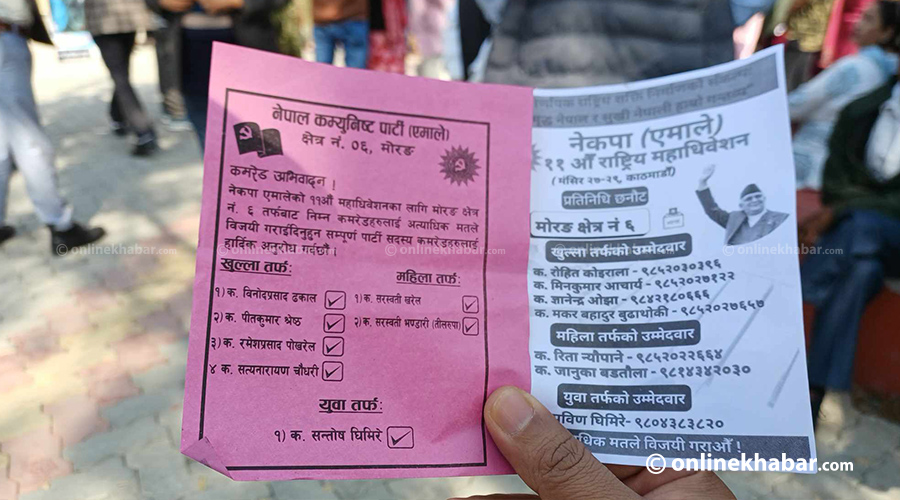 नेपाल कम्युनिष्ट पार्टी (एमाले)
क्षेत्र नं. ०६, मोरङ
कमरेड अभिवादन !
नेकपा एमालेको ११औं महाधिवेशनका लागि मोरङ क्षेत्र
नं. ६ तर्फबाट निम्न कमरेडहरुलाई अत्याधिक मतले
विजयी गराईदिनुहुन सम्पूर्ण पार्टी सदस्य कमरेडहरुलाई
हार्दिक अनुरोध गर्दछौं ।
खुल्ला तर्फः
१) क. विनोदप्रसाद ढकाल
२) क. पीतकुमार श्रेष्ठ
३) क. रमेशप्रसाद पोखरेल
४ क. सत्यनारायण चौधरी
महिला तर्फः
१) क. सरस्वती खरेल
२) क. सरस्वती भण्डारी (तीलरुपा)
युवा तर्फः
१) क. सन्तोष घिमिरे
राष्ट्रिय शक्ति निर्माणको संकल्प
नेपाल र सुखी नेपाली हाम्रो गन्तव्य"
नेकपा (एमाले)
११ औँ राष्ट्रिय महाधिवेशन
(मंसिर २७-२९, काठमाडौं)
प्रतिनिधि छनौट
मोरङ क्षेत्र नं ६
खुल्ला तर्फको उम्मेदवार
क. रोहित कोइराला - ९८५२०३०३९६
क. मिनकुमार आचार्य - ९८५२०२७१२२
क. ज्ञानेन्द्र ओझा - ९८४२१८०६६६
क. मकर बहादुर बुढाथोकी - ९८५२०२७६५७
महिला तर्फको उम्मेदवार
क. रिता न्यौपाने - ९८५२०२२६६४
क. जानुका बडतौला - ९८१४३४२०३०
युवा तर्फको उम्मेदवार
घिमिरे- ९८०४३८३८२०
मतले विजयी गराऔं !
onlinekhabar.com
onlinekhabar.com
onlinekhabar.com
onlinekhabar.com